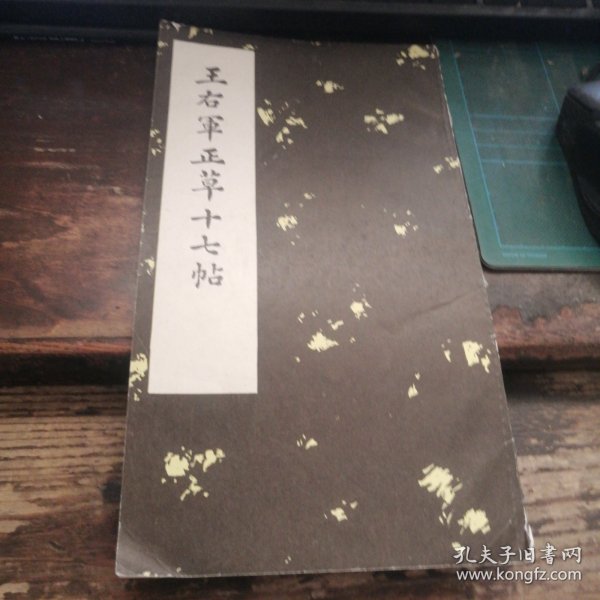 王右軍正草十七帖
孔夫子旧書网
www.kongfz.com